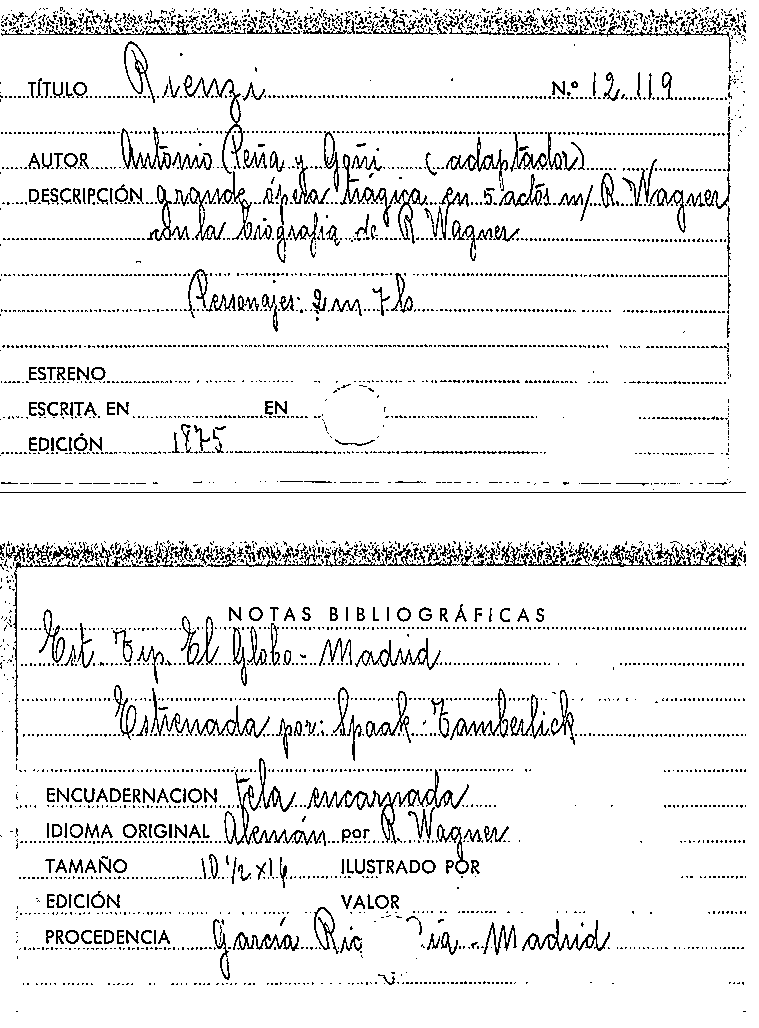 TÍTULO Rienzi N.º 12.119
AUTOR Antonio Peña y Goñi (adaptador)
DESCRIPCIÓN grande ópera trágica en 5 actos m/ R. Wagner
con la biografia de R. Wagner
Personajes: 2 m 7 h
ESTRENO
ESCRITA EN EN
EDICIÓN 1875
NOTAS BIBLIOGRÁFICAS
Est. Tip. El Globo - Madrid
Estrenada por: Spaak - Tamberlick
ENCUADERNACION tela encarnada
IDIOMA ORIGINAL Alemán por R. Wagner
TAMAÑO 10 1/2 x 16 ILUSTRADO POR
EDICIÓN VALOR
PROCEDENCIA García Ric - Madrid